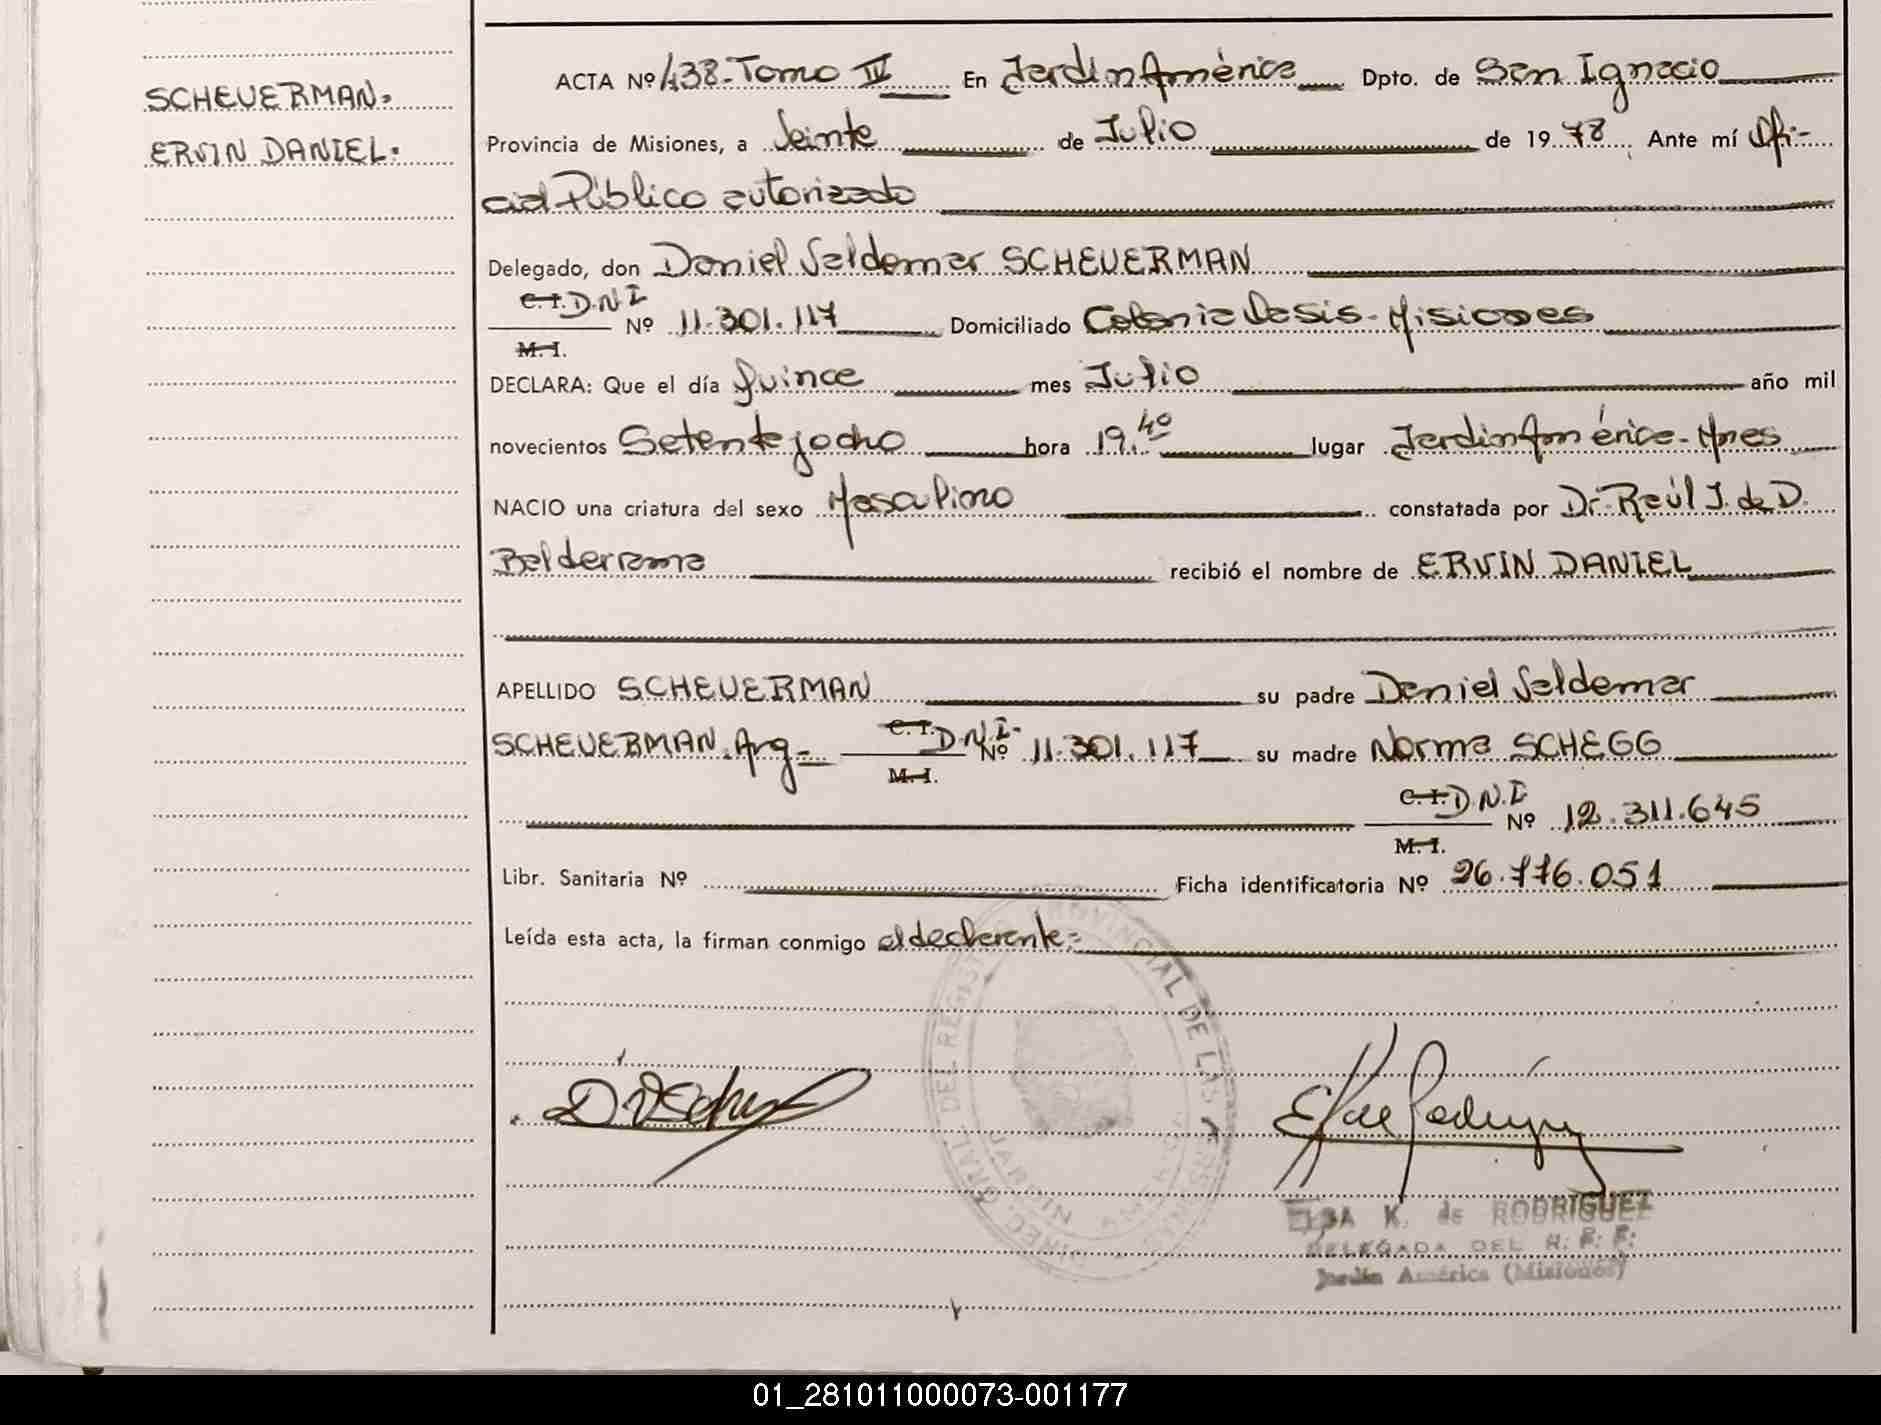 SCHEUERMAN.
ERVIN DANIEL.
ACTA Nº 438-Tomo IV En Jardín América Dpto. de San Ignacio
Provincia de Misiones, a Veinte de Julio de 1978 Ante mí Ofi-
cial Público autorizado
Delegado, don Daniel Valdemar SCHEUERMAN
C.I. D.N.I
M.I. Nº 11.301.117 Domiciliado Colonia Oasis-Misiones
DECLARA: Que el día Quince mes Julio año mil
novecientos Setenta y ocho hora 19.40 lugar Jardín América-Mnes
NACIO una criatura del sexo Masculino constatada por Dr. Raúl J. de D.
Balderrama recibió el nombre de ERVIN DANIEL
APELLIDO SCHEUERMAN su padre Daniel Valdemar
SCHEUERMAN Arg- C.I. D.N.I- M.I. Nº 11.301.117 su madre Norma SCHEGG
C.I. D.N.I M.I. Nº 12.311.645
Libr. Sanitaria Nº Ficha identificatoria Nº 26.776.051
Leída esta acta, la firman conmigo el declarante=
DIREC. GRAL. DEL REGISTRO PROVINCIAL DE LAS PERSONAS
ELSA K. de RODRIGUEZ
DELEGADA DEL R. P. P.
Jardín América (Misiones)
01_281011000073-001177